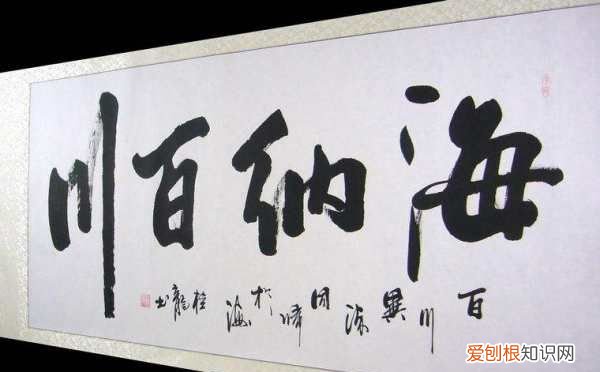 海纳百川
百川異源同歸於海 桂龍书
爱刨根知识网